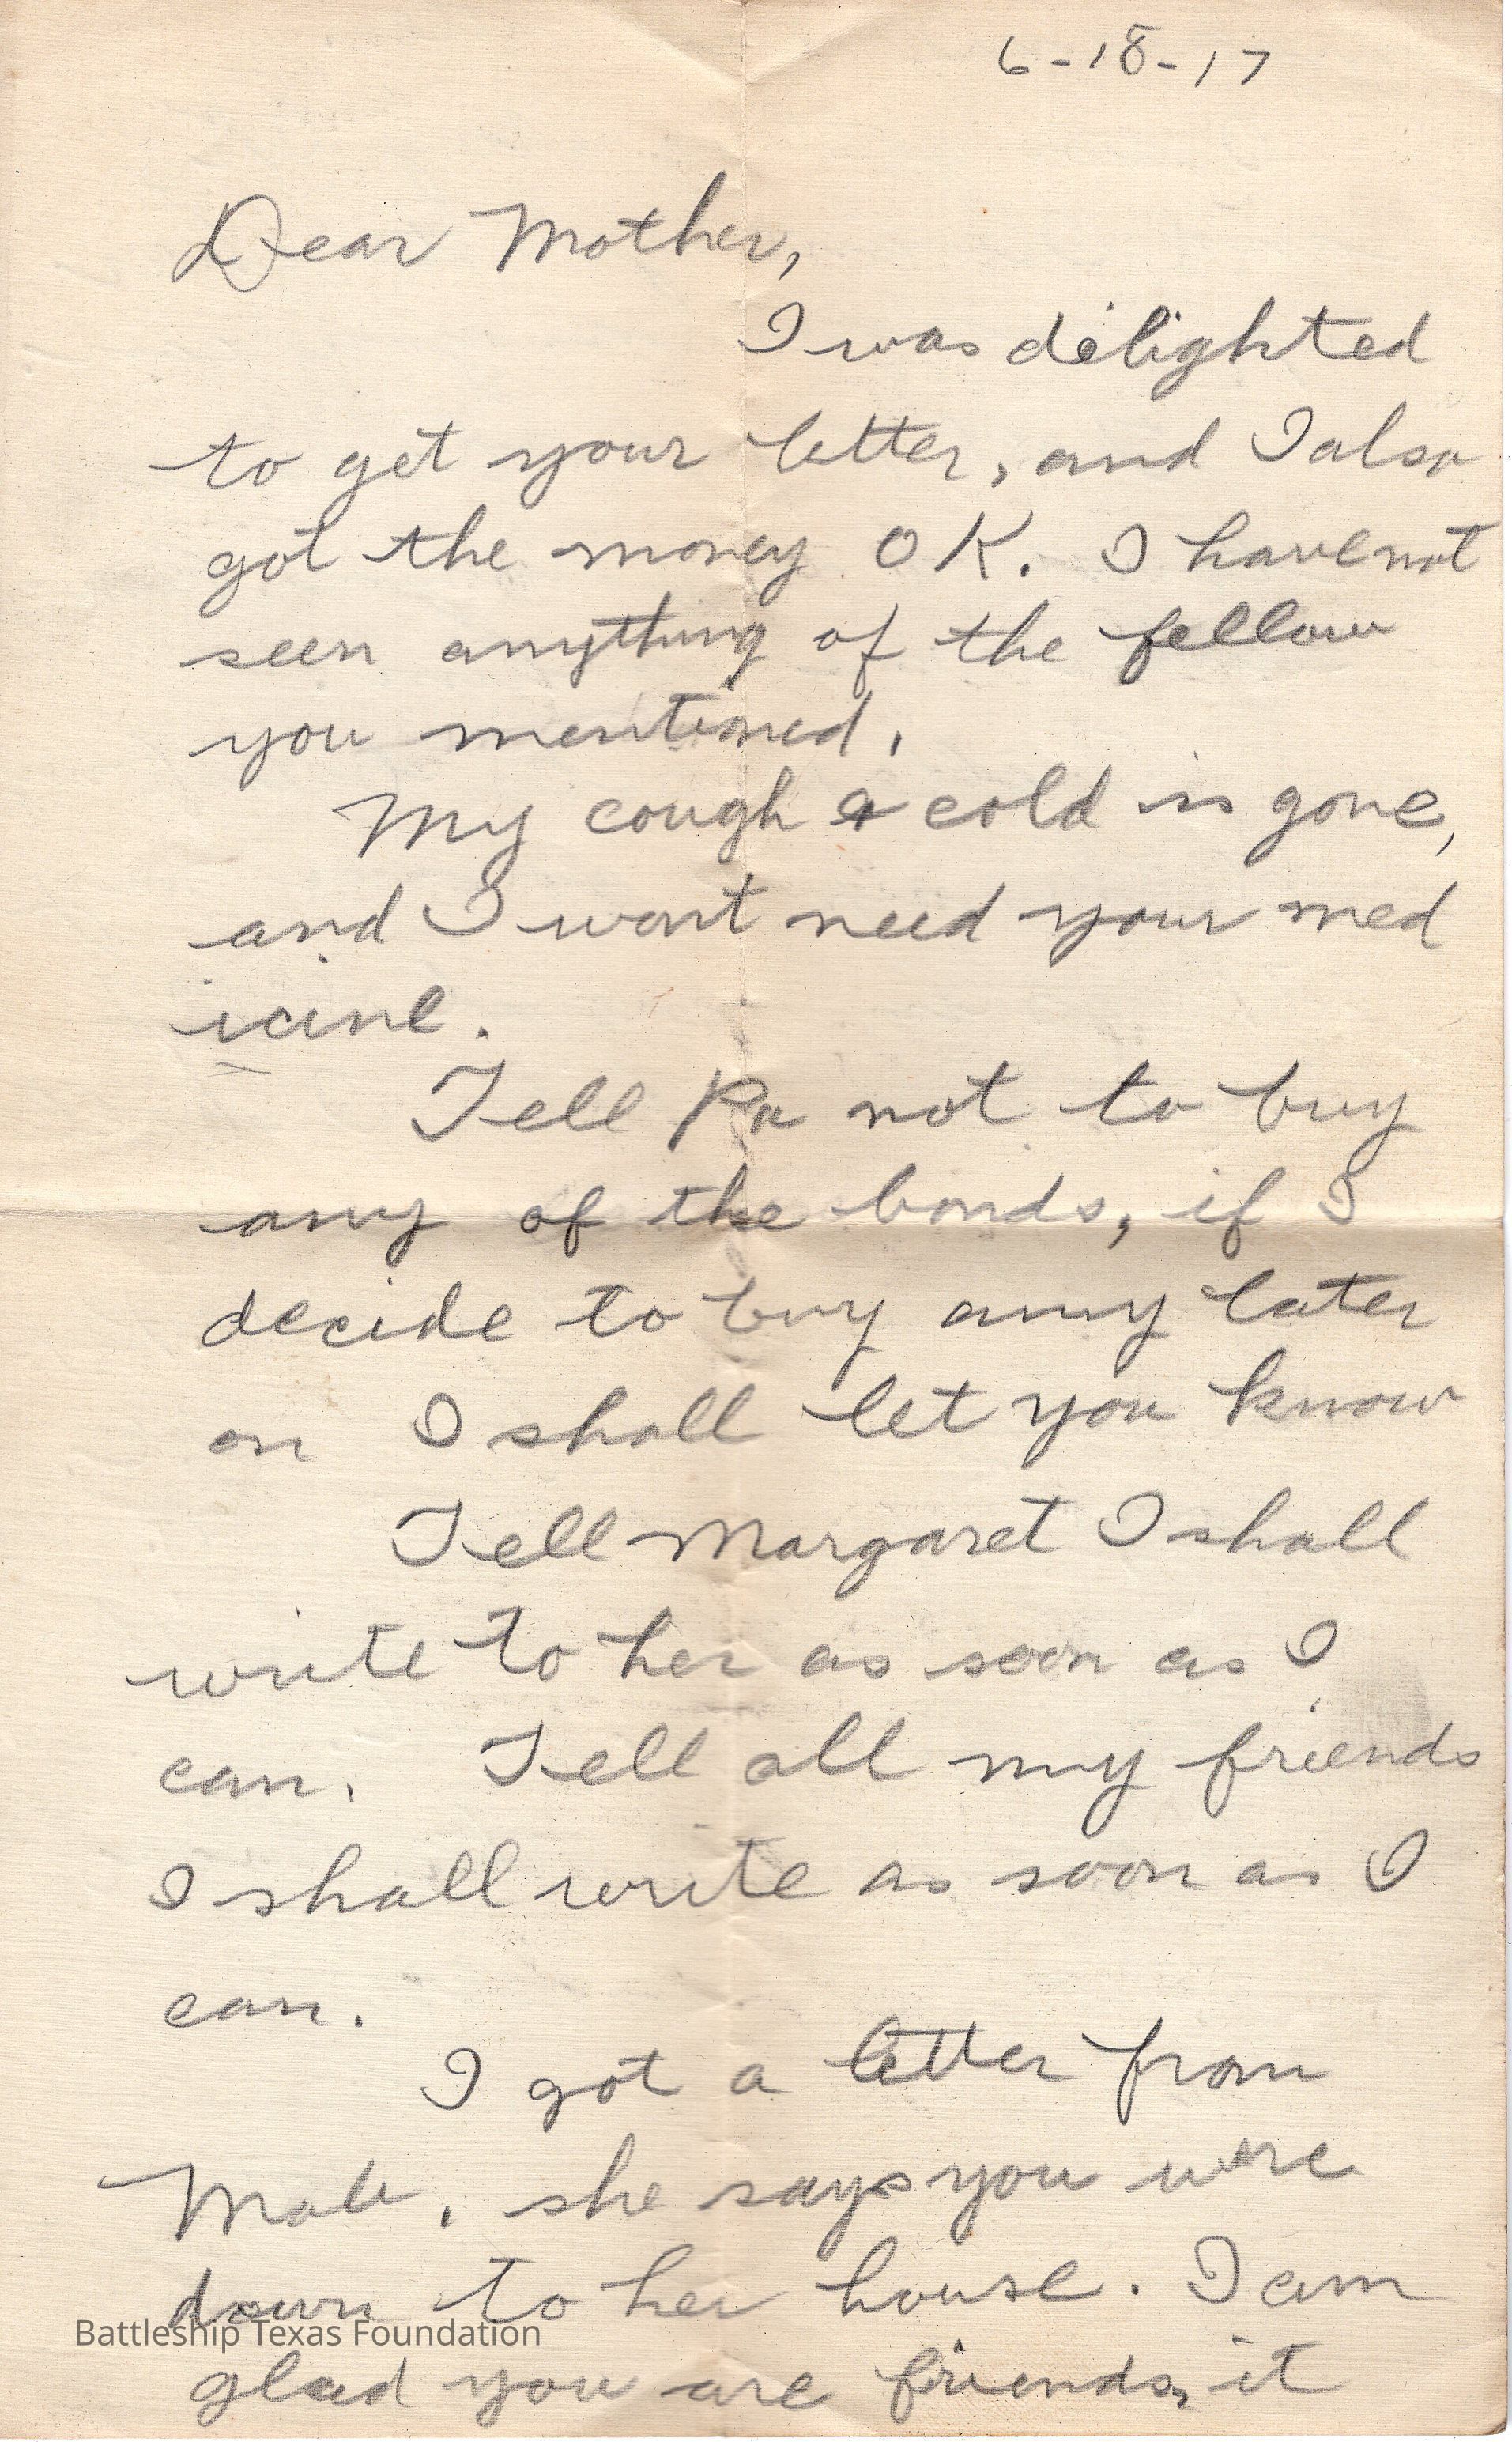 6-18-17
Dear Mother,
I was delighted
to get your letter, and I also
got the money OK. I have not
seen anything of the fellow
you mentioned.
My cough & cold is gone,
and I wont need your med
icine.
Tell Pa not to buy
any of the bonds, if I
decide to buy any later
on I shall let you know
Tell Margaret I shall
write to her as soon as I
can. Tell all my friends
I shall write as soon as I
can.
I got a letter from
she says you were
down to her house. I am
Battleship Texas Foundation
glad you are friends, it